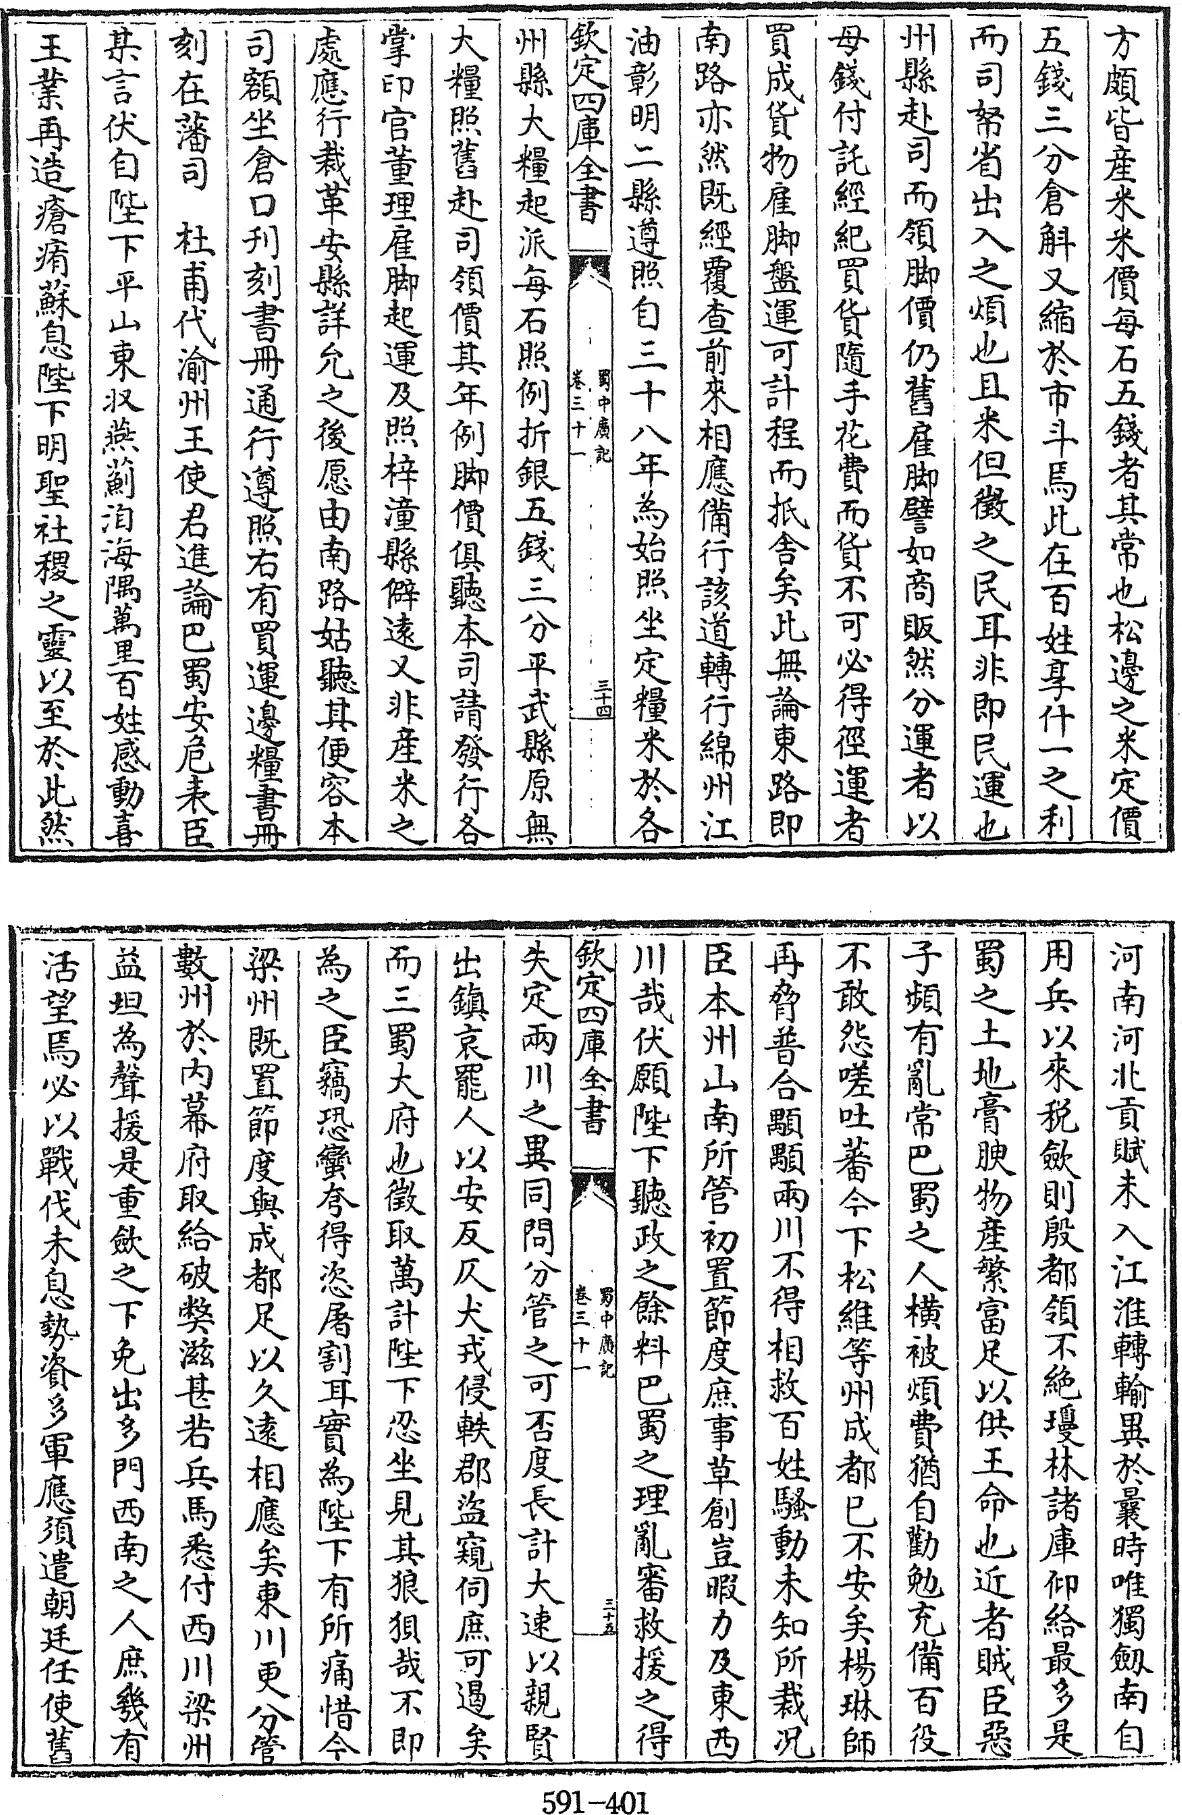 方頗皆産米米價每石五錢者其常也松邊之米定價
五錢三分倉斛又縮於市斗焉此在百姓享什一之利
而司帑省出入之煩也且米但徵之民耳非即民運也
州縣赴司而領脚價仍舊雇脚譬如商販然分運者以
母錢付託經紀買貨隨手花費而貨不可必得徑運者
買成貨物雇脚盤運可計程而抵舍矣此無論東路即
南路亦然既經覆查前來相應備行該道轉行綿州江
油彰明二縣遵照自三十八年為始照坐定糧米於各
欽定四庫全書
蜀中廣記
卷三十一
三十四
州縣大糧起派每石照例折銀五錢三分平武縣原無
大糧照舊赴司領價其年例脚價俱聽本司請發行各
掌印官董理雇脚起運及照梓潼縣僻遠又非産米之
處應行裁革安縣詳允之後愿由南路姑聽其便容本
司額坐倉口刋刻書冊通行遵照右有買運邊糧書冊
刻在藩司　杜甫代渝州王使君進論巴蜀安危表臣
某言伏自陛下平山東収燕薊洎海隅萬里百姓感動喜
王業再造瘡痏蘇息陛下明聖社稷之靈以至於此然
河南河北貢賦未入江淮轉輸異於曩時唯獨劔南自
用兵以來税斂則殷部領不絶瓊林諸庫仰給最多是
蜀之土地膏腴物産繁富足以供王命也近者賊臣惡
子頻有亂常巴蜀之人横被煩費猶自勸勉充備百役
不敢怨嗟吐蕃今下松維等州成都已不安矣楊琳師
再脅普合顒顒兩川不得相救百姓騷動未知所裁况
臣本州山南所管初置節度庶事草創豈暇力及東西
川哉伏願陛下聽政之餘料巴蜀之理亂審救援之得
欽定四庫全書
蜀中廣記
卷三十一
三十五
失定兩川之異同問分管之可否度長計大速以親賢
出鎮哀罷人以安反仄犬戎侵軼郡盜窺伺庶可遏矣
而三蜀大府也徵取萬計陛下忍坐見其狼狽哉不即
為之臣竊恐蠻夸得恣屠割耳實為陛下有所痛惜今
梁州既置節度與成都足以久遠相應矣東川更分管
數州於内幕府取給破獘滋甚若兵馬悉付西川梁州
益坦為聲援是重斂之下免出多門西南之人庶幾有
活望焉必以戰伐未息勢資多軍應須遣朝廷任使舊
591-401